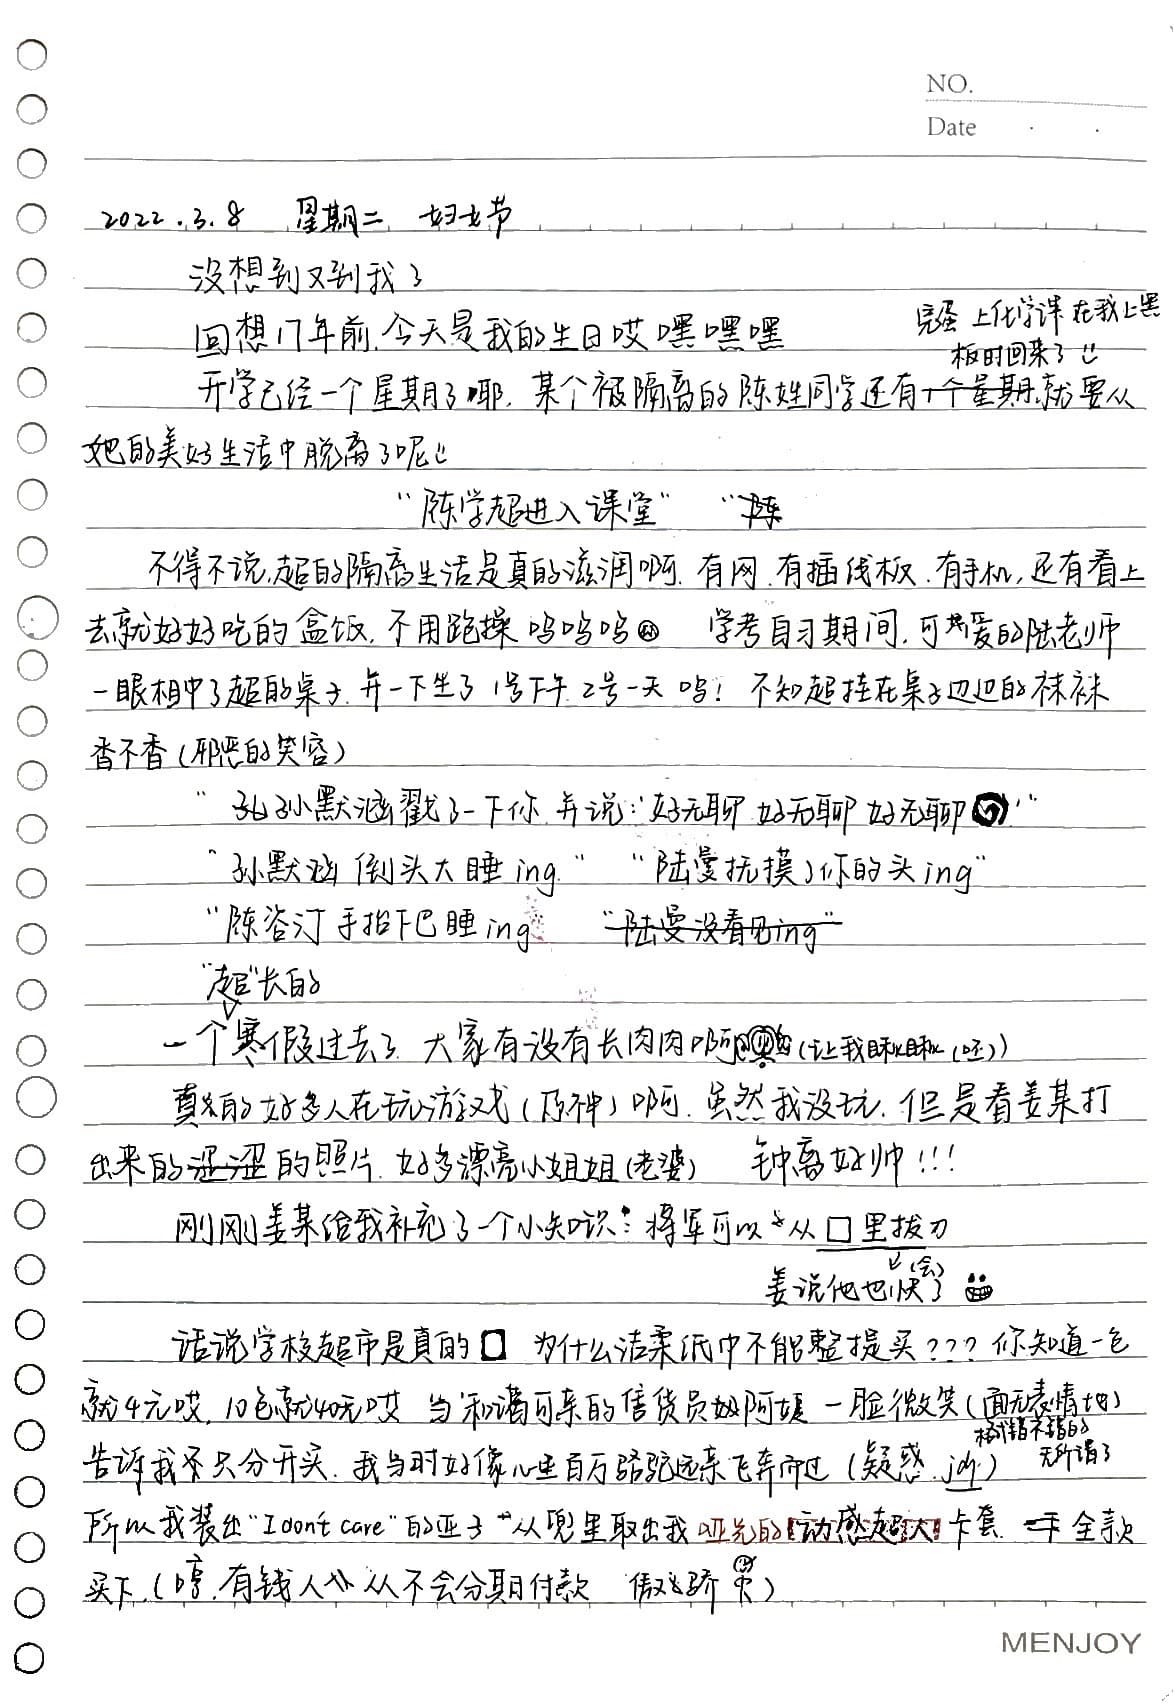 NO.
Date
2022.3.8 星期二 妇女节
没想到又到我了
回想17年前,今天是我的生日哎 嘿嘿嘿
完蛋 上化学课 在我上黑
板时回来了
开学已经一个星期了耶,某个被隔离的陈姓同学还有一个星期就要从
她的美好生活中脱离了呢
“陈学超进入课堂” “陈
不得不说,超的隔离生活是真的滋润啊,有网,有插线板,有手机,还有看上
去就好好吃的盒饭,不用跑操 呜呜呜 学考自习期间,可爱的陆老师
一眼相中了超的桌子,并一下坐了1号下午,2号一天 呜! 不知超挂在桌子边边的袜袜
香不香(邪恶的笑容)
“孙默涵戳了一下你,并说:‘好无聊 好无聊 好无聊’”
“孙默涵 倒头大睡ing” “陆曼抚摸了你的头ing”
“陈咨汀 手抬下巴睡ing “陆曼没看见ing”
“超”长的
一个寒假过去了,大家有没有长肉肉啊 (让我瞅瞅(呸))
真的好多人在玩游戏(原神)啊,虽然我没玩,但是看姜某打
出来的涩涩的照片,好多漂亮小姐姐(老婆) 钟离好帅!!!
刚刚姜某给我补充了一个小知识:将军可以从口里拔刀
姜说他也快了
(会)
话说学校超市是真的口 为什么洁柔纸巾不能整提买???你知道一包
就4元哎,10包就40元哎 当和蔼可亲的售货员阿姨一脸微笑(面无表情地)
告诉我只分开买,我当时好像心里百万骆驼远来飞奔而过(疑惑.jpg)
无所谓了
所以我装出“I don't care”的样子 从兜里取出我哑光的动感超人卡套 全款
买下,(哼,有钱人从不会分期付款 傲骄)
MENJOY